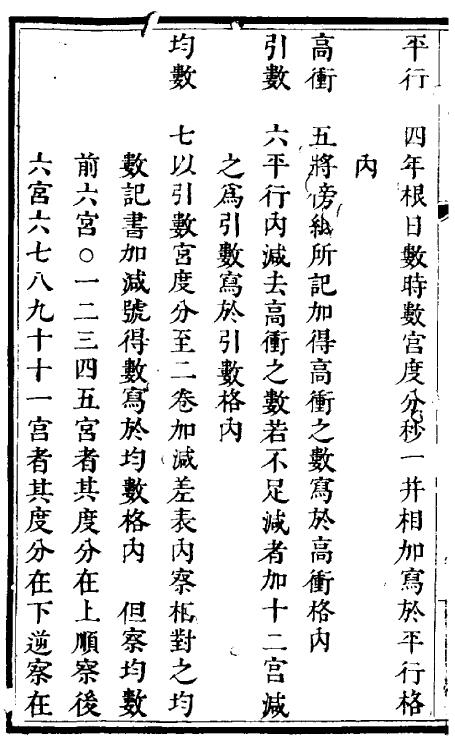 平行　四年根日數時數宮度分秒一并相加寫於平行格
內
高衝　五將傍紙所記加得高衝之數寫於高衝格內
引數　六平行內減去高衝之數若不足減者加十二宮減
之爲引數寫於引數格內
均數　七以引數宮度分至二卷加減差表內察相對之均
數記書加減號得數寫於均數格內　但察均數
前六宮○一二三四五宮者其度分在上順察後
六宮六七八九十十一宮者其度分在下逆察在